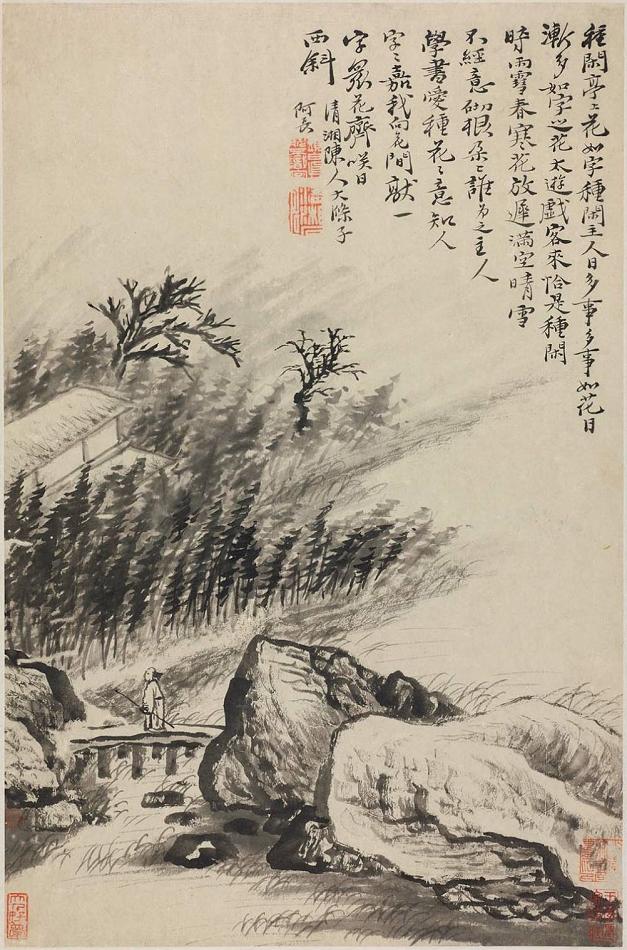 種閑亭上花如字種閑主人日多事多事如花日
漸多如字之花太遊戲客來恰是種閑
時雨雪春寒花放遲滿空晴雪
不經意砌根朵朵誰為之主人
學書愛種花之意知人
字字嘉我向花間獻一
字眾花齊咲日
西斜
清湘陳人大滌子
阿長